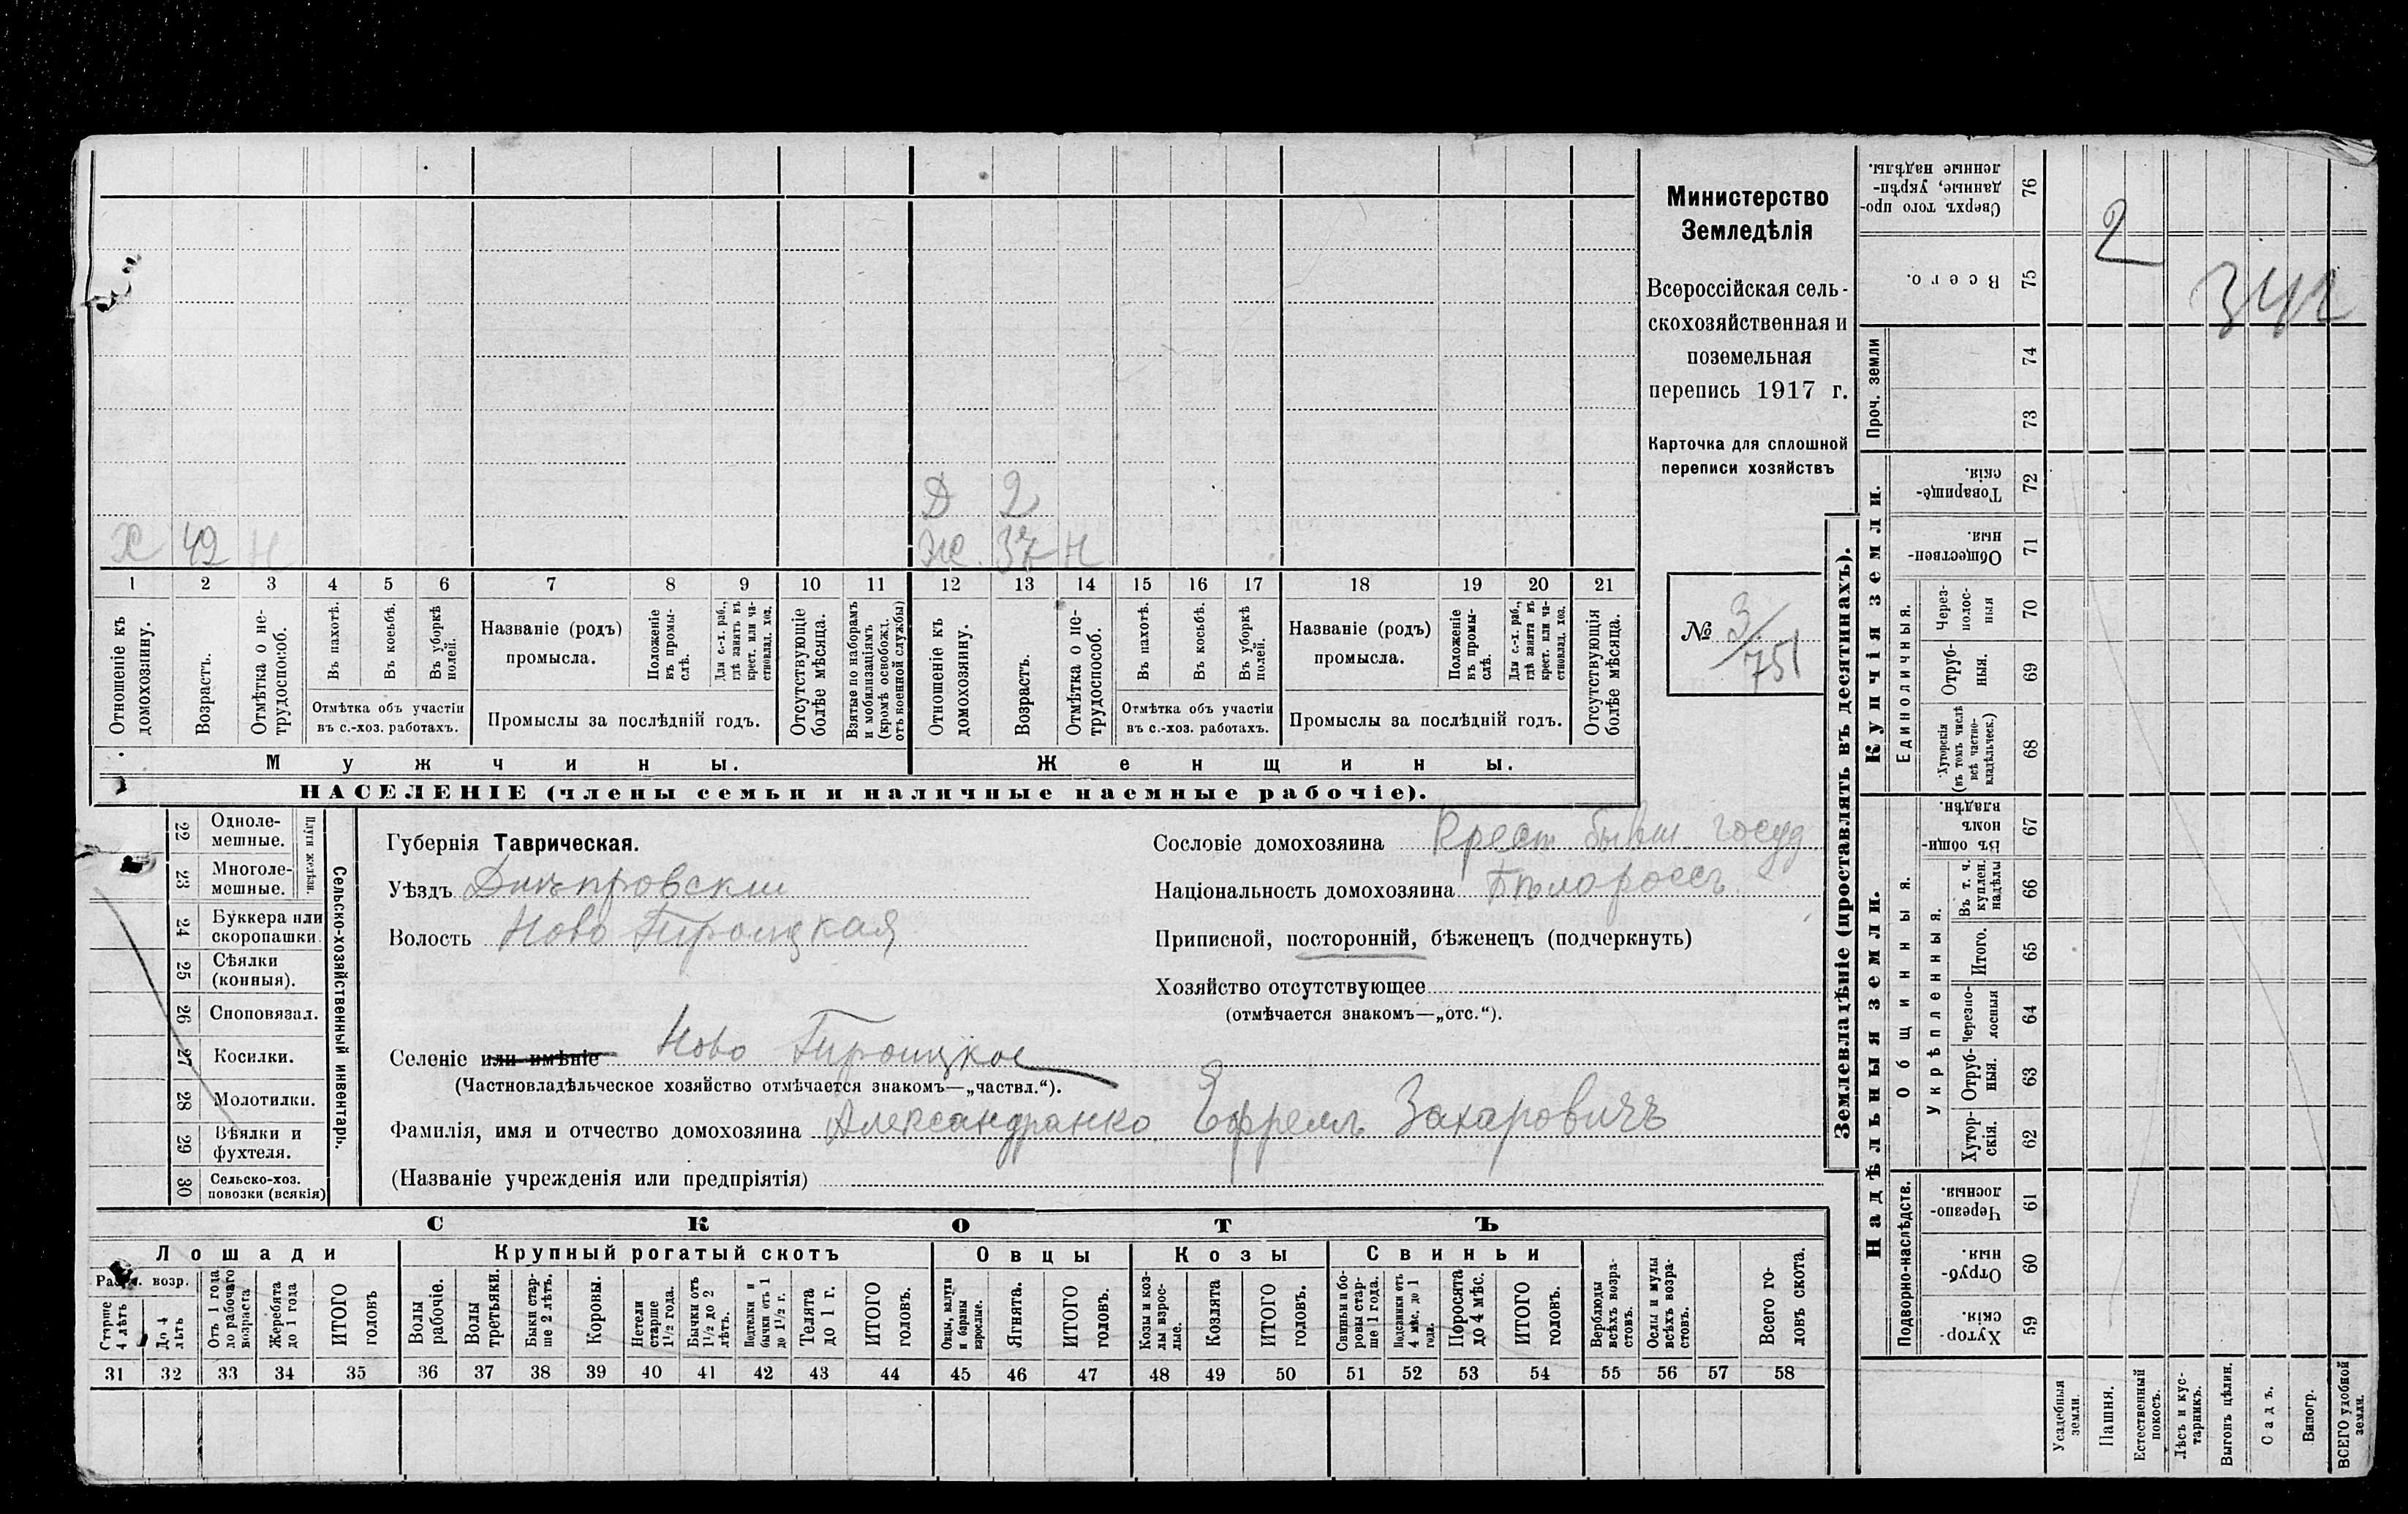 Х 42 Н
Д 2
Ж. 37 Н
1 2 3 4 5 6 7 8 9 10 11 12 13 14 15 16 17 18 19 20 21
Отношеніе къ домохозяину.
Возрастъ.
Отмѣтка о не-трудоспособ.
Въ пахотѣ.
Въ косьбѣ.
Въ уборкѣ полей.
Отмѣтка объ участіи
въ с.-хоз. работахъ.
Названіе (родъ)
промысла.
Положеніе въ промы-слѣ.
Для с.-х. раб., гдѣ занятъ въ крест. или ча-стновлад. хоз.
Промыслы за послѣдній годъ.
Отсутствующіе болѣе мѣсяца.
Взятые по наборамъ и мобилизаціямъ (кромѣ освобожд. отъ военной службы)
Отношеніе къ домохозяину.
Возрастъ.
Отмѣтка о не-трудоспособ.
Въ пахотѣ.
Въ косьбѣ.
Въ уборкѣ полей.
Отмѣтка объ участіи
въ с.-хоз. работахъ.
Названіе (родъ)
промысла.
Положеніе въ промы-слѣ.
Для с.-х. раб., гдѣ занята въ крест. или ча-стновлад. хоз.
Промыслы за послѣдній годъ.
Отсутствующія болѣе мѣсяца.
Мужчины.
Женщины.
НАСЕЛЕНІЕ (члены семьи и наличные наемные рабочіе).
Министерство
Земледѣлія
Всероссійская сель-
скохозяйственная и
поземельная
перепись 1917 г.
Карточка для сплошной
переписи хозяйствъ
№ 3/751
22 Одноле-мешные.
23 Многоле-мешные.
Плуги желѣзн.
24 Буккера или скоропашки.
25 Сѣялки (конныя).
26 Сноповязал.
27 Косилки.
28 Молотилки.
29 Вѣялки и фухтеля.
30 Сельско-хоз. повозки (всякія)
Сельско-хозяйственный инвентарь.
Губернія Таврическая.
Уѣздъ Днѣпровскій
Волость Ново Троицкая
Селеніе или имѣніе Ново Троицкое
(Частновладѣльческое хозяйство отмѣчается знакомъ—„частвл.“).
Фамилія, имя и отчество домохозяина Александранко Ефремъ Захаровичъ
(Названіе учрежденія или предпріятія)
Сословіе домохозяина Крест бывш. госуд
Національность домохозяина Бѣлороссъ
Приписной, посторонній, бѣженецъ (подчеркнуть)
Хозяйство отсутствующее
(отмѣчается знакомъ—„отс.“).
СКОТЪ
Лошади
Крупный рогатый скотъ
Овцы
Козы
Свиньи
возр.
Старше 4 лѣтъ
До 4 лѣтъ
Отъ 1 года до рабочаго возраста
Жеребята до 1 года
ИТОГО головъ
Волы рабочіе.
Волы третьяки.
Быки стар-ше 2 лѣтъ.
Коровы.
Нетели старше 1½ года.
Бычки отъ 1½ до 2 лѣтъ.
Подтелки и бычки отъ 1 до 1½ г.
Телята до 1 г.
ИТОГО головъ.
Овцы, валухи и бараны взрослые.
Ягнята.
ИТОГО головъ.
Козы и коз-лы взрос-лые.
Козлята
ИТОГО головъ.
Свиньи и бо-ровы стар-ше 1 года.
Подсвинки отъ 4 мѣс. до 1 года.
Поросята до 4 мѣс.
ИТОГО головъ.
Верблюды всѣхъ возра-стовъ.
Ослы и мулы всѣхъ возра-стовъ.
Всего го-ловъ скота.
31 32 33 34 35 36 37 38 39 40 41 42 43 44 45 46 47 48 49 50 51 52 53 54 55 56 57 58
Землевладѣніе (проставлять въ десятинахъ).
Сверхъ того про-данные, укрѣп-ленные надѣлы. 76
2
Всего. 75
342
Проч. земли
74
73
Купчія земли.
Товарище-скія. 72
Обществен-ныя. 71
Единоличныя.
Через-полос-ныя 70
Отруб-ныя. 69
Хуторскія (въ томъ числѣ всѣ частно-владѣльческ.) 68
Надѣльныя земли.
Общинныя.
Въ общин-номъ владѣн. 67
Укрѣпленныя.
Въ т. ч. куплен. надѣлы 66
Итого. 65
Черезпо-лосныя 64
Отруб-ныя. 63
Хутор-скія. 62
Подворно-наслѣдств.
Черезпо-лосныя. 61
Отруб-ныя. 60
Хутор-скія. 59
Усадебныя земли.
Пашня.
Естественный покосъ.
Лѣсъ и кус-тарникъ.
Выгонъ цѣлин.
Садъ.
Виногр.
ВСЕГО удобной земли.